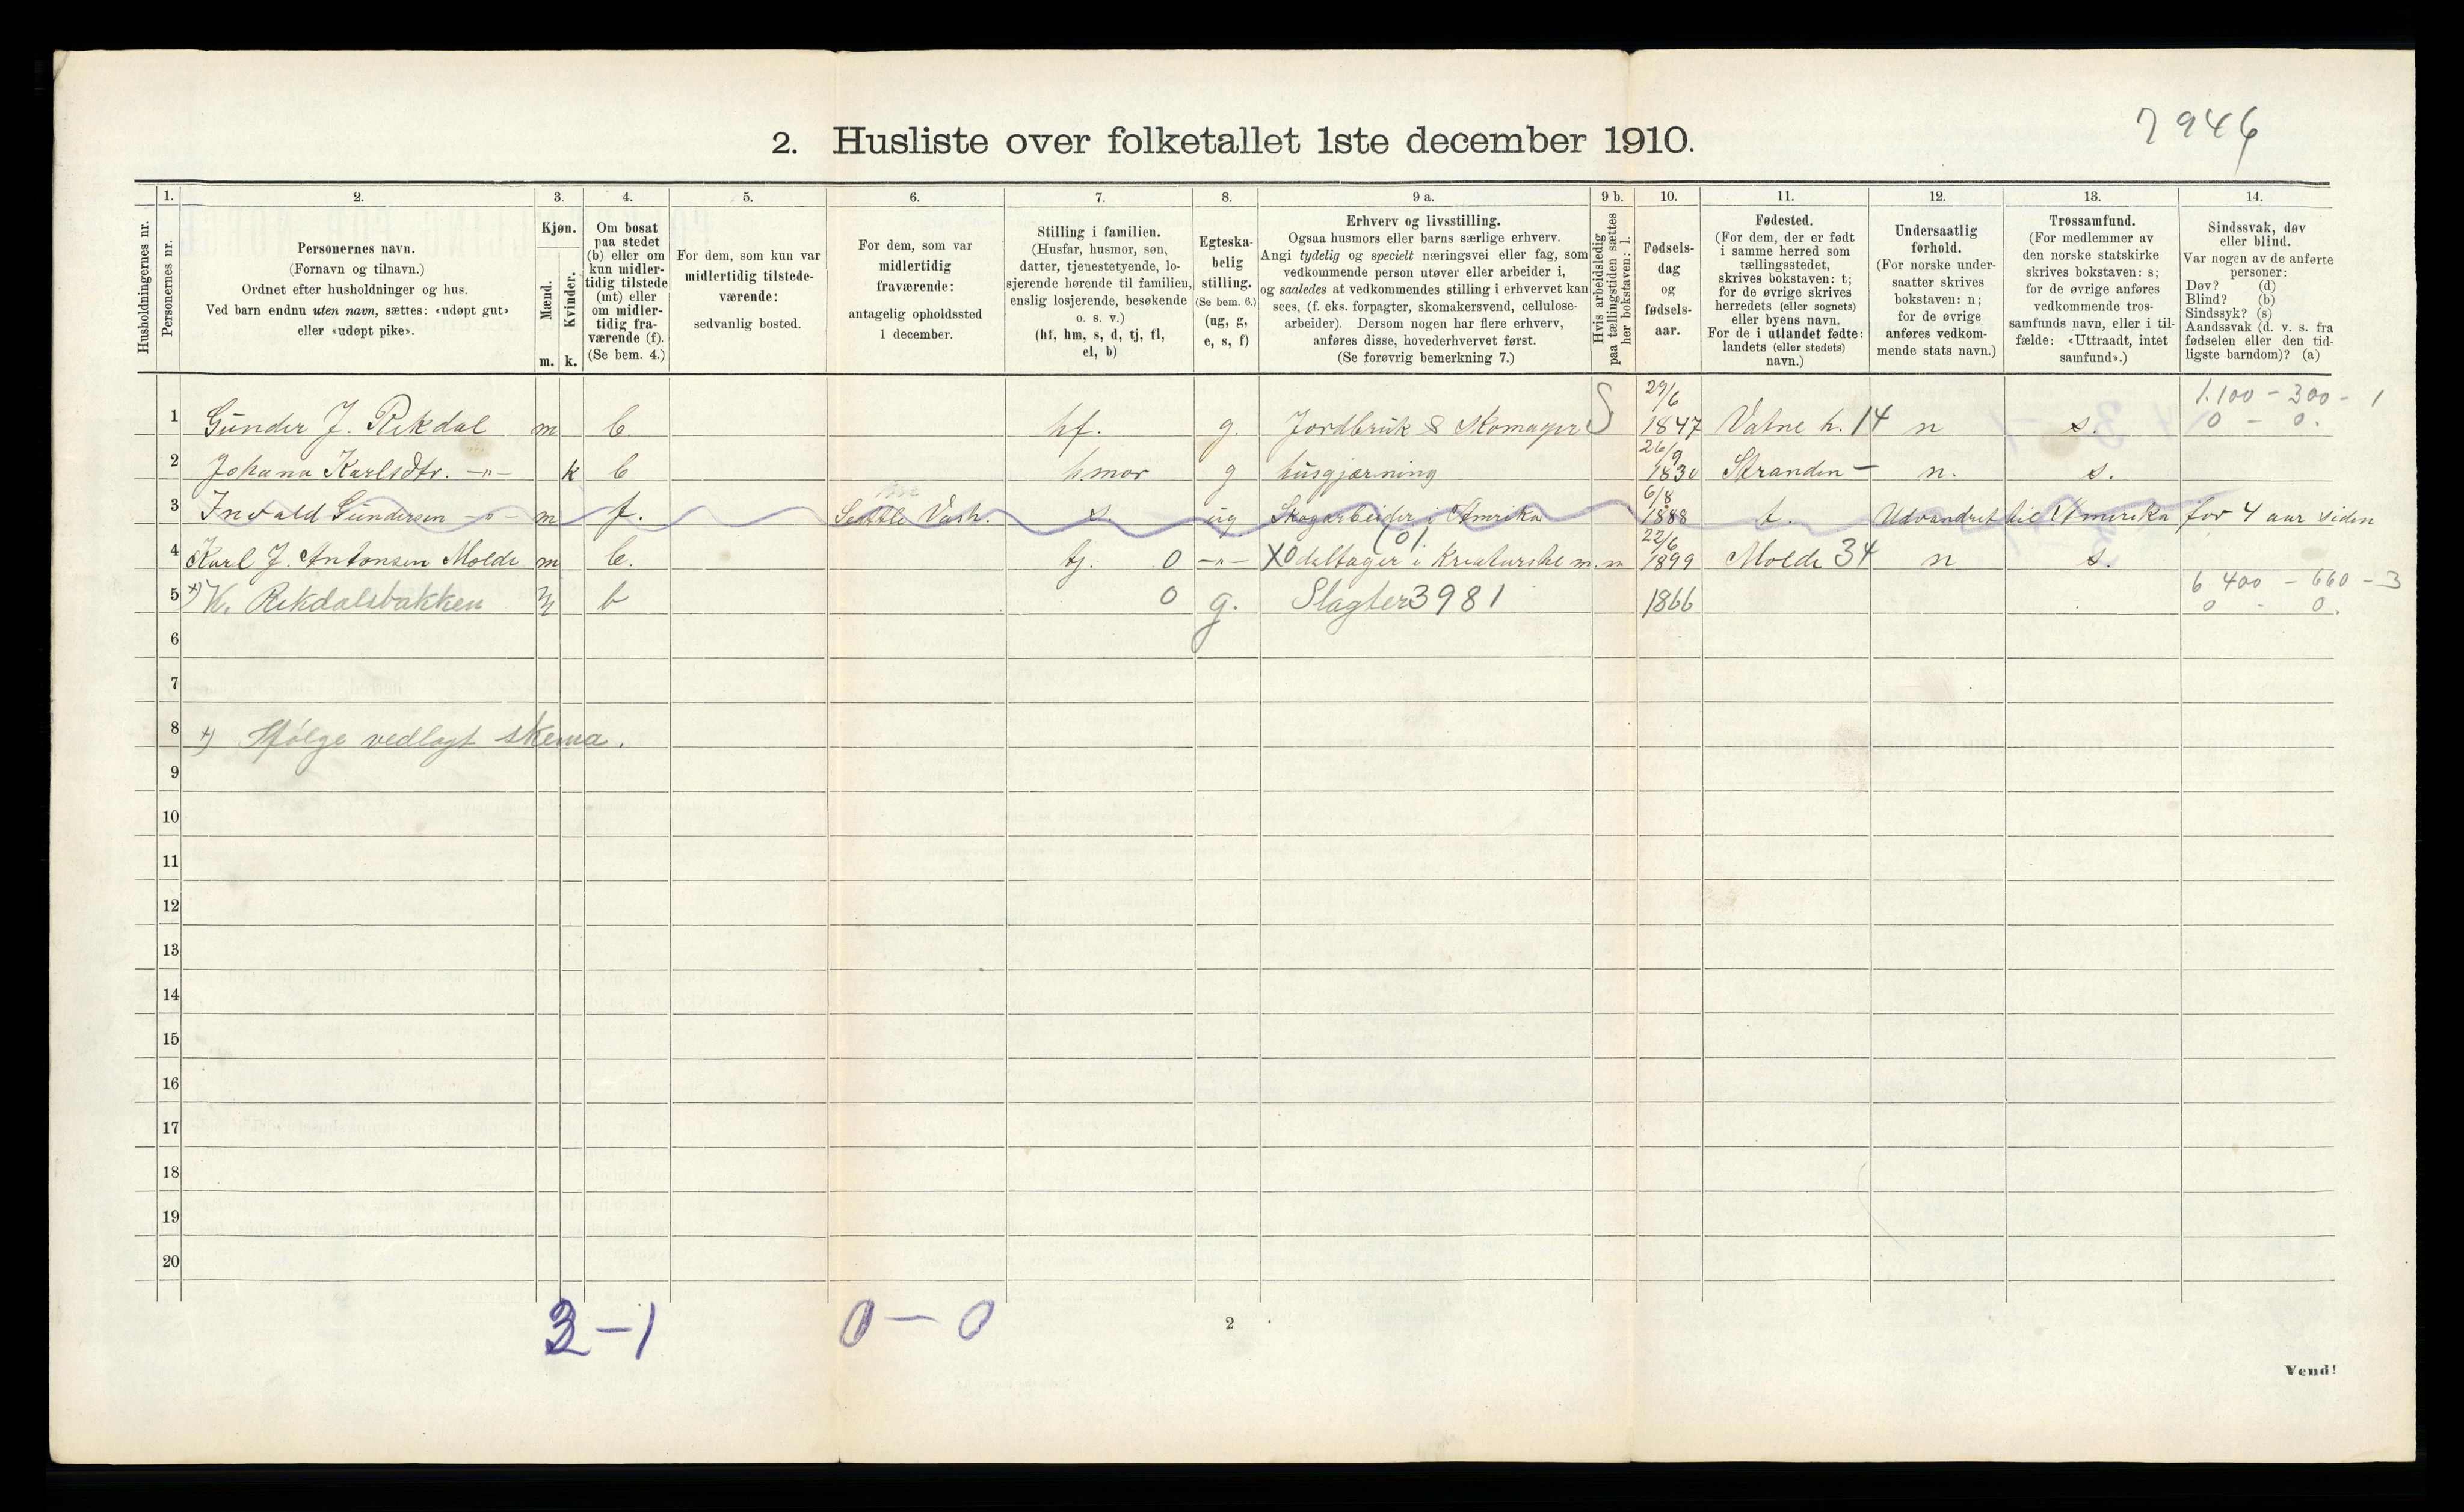 7946
2. Husliste over folketallet 1ste december 1910.
Husholdningernes nr.
1. Personernes nr.
2. Personernes navn.
(Fornavn og tilnavn.)
Ordnet efter husholdninger og hus.
Ved barn endnu uten navn, sættes: «udøpt gut»
eller «udøpt pike».
3. Kjøn.
Mænd. m.
Kvinder. k.
4. Om bosat
paa stedet
(b) eller om
kun midler-
tidig tilstede
(mt) eller
om midler-
tidig fra-
værende (f).
(Se bem. 4.)
5. For dem, som kun var
midlertidig tilstede-
værende:
sedvanlig bosted.
6. For dem, som var
midlertidig
fraværende:
antagelig opholdssted
1 december.
7. Stilling i familien.
(Husfar, husmor, søn,
datter, tjenestetyende, lo-
sjerende hørende til familien,
enslig losjerende, besøkende
o. s. v.)
(hf, hm, s, d, tj, fl,
el, b)
8. Egteska-
belig
stilling.
(Se bem. 6.)
(ug, g,
e, s, f)
9 a. Erhverv og livsstilling.
Ogsaa husmors eller barns særlige erhverv.
Angi tydelig og specielt næringsvei eller fag, som
vedkommende person utøver eller arbeider i,
og saaledes at vedkommendes stilling i erhvervet kan
sees, (f. eks. forpagter, skomakersvend, cellulose-
arbeider). Dersom nogen har flere erhverv,
anføres disse, hovederhvervet først.
(Se forøvrig bemerkning 7.)
9 b. Hvis arbeidsledig
paa tællingstiden sættes
her bokstaven: l.
10. Fødsels-
dag
og
fødsels-
aar.
11. Fødested.
(For dem, der er født
i samme herred som
tællingsstedet,
skrives bokstaven: t;
for de øvrige skrives
herredets (eller sognets)
eller byens navn.
For de i utlandet fødte:
landets (eller stedets)
navn.)
12. Undersaatlig
forhold.
(For norske under-
saatter skrives
bokstaven: n;
for de øvrige
anføres vedkom-
mende stats navn.)
13. Trossamfund.
(For medlemmer av
den norske statskirke
skrives bokstaven: s;
for de øvrige anføres
vedkommende tros-
samfunds navn, eller i til-
fælde: «Uttraadt, intet
samfund».)
14. Sindssvak, døv
eller blind.
Var nogen av de anførte
personer:
Døv? (d)
Blind? (b)
Sindssyk? (s)
Aandssvak (d. v. s. fra
fødselen eller den tid-
ligste barndom)? (a)
1.100 - 300 - 1
1 Gunder J. Rekdal m b hf. g. Jordbruk & Skomager S 29/6 1847 Vatne h. 14 n s. 0 - 0.
2 Johana Karlsdtr. -"- k b hmor g husgjærning 26/9 1830 Stranden - n. s.
3 Invald Gundersen -"- m f. Seattle Vash. s. ug Skogarbeider i Amrika 6/8 1888 t. Udvandret til Amerika for 4 aar siden
4 Karl J. Antonsen Molde m b. tj. 0 -"- X0 deltager i Kreaturste m. m 22/6 1899 Molde 34 n s.
6 400 - 660 - 3
5 +) K. Rekdalsbakken m b 0 g. Slagter 3981 1866 0 - 0.
6
7
8 +) Ifølge vedlagt skema.
9
10
11
12
13
14
15
16
17
18
19
20
3 - 1 0 - 0
2
Vend!